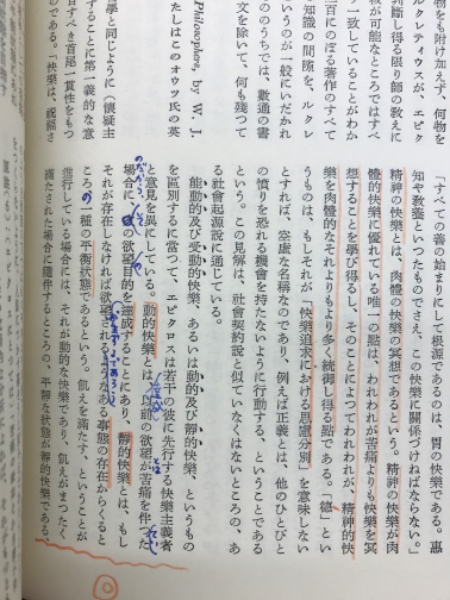 物を も附け加えず、何物を
ルクレティウスが、エピク
判斷し得る限り師の敎えに
敎が可能なところではすべ
一致していることがわか
三百にのぼる著作のすべて
知識の間隙を、ルクレ
というのが一般にいだかれ
ののうちでは、數通の書
文を除いて、何も殘つて
Philosophers, by W. J.
たしはこのオウツ氏の英
學と同じように(懷疑主
することに第一義的な意
すべき首尾一貫性をもつ
のである。「快樂は、祝福さ
「すべての善の始まりにして根源であるのは、胃の快樂である。惠
知や敎養といつたものでさえ、この快樂に關係づけねばならない。」
精神の快樂とは、肉體の快樂の冥想であるという。精神の快樂が肉
體的快樂に優れている唯一の點は、われわれが苦痛よりも快樂を冥
想することを學び得るし、そのことによつてわれわれが、精神的快
樂を肉體的なそれよりもより多く統御し得る點である。「德」とい
うものは、もしそれが「快樂追求における思慮分別」を意味しない
とすれば、空虛な名稱なのであり、例えば正義とは、他のひとびと
の憤りを恐れる機會を持たないように行動する、ということである
という。この見解は、社會契約說と似ていなくはないところの、あ
る社會起源說に通じている。
能動的及び受動的快樂、あるいは動的及び靜的快樂、というもの
を區別するに當つて、エピクロスは若干の彼に先行する快樂主義者
と意見を異にしている。動的快樂とは、以前の欲望が苦痛を伴つた
場合に、の欲望目的を達成することにあり、靜的快樂とは、もし
それが存在しなければ欲望されるようなある事態の存在からくると
ころの一種の平衡狀態であるという。飢えを滿たす、ということが
進行している場合には、それが動的な快樂であり、飢えがまつたく
滿たされた場合に隨伴するところの、平靜な狀態が靜的快樂である。